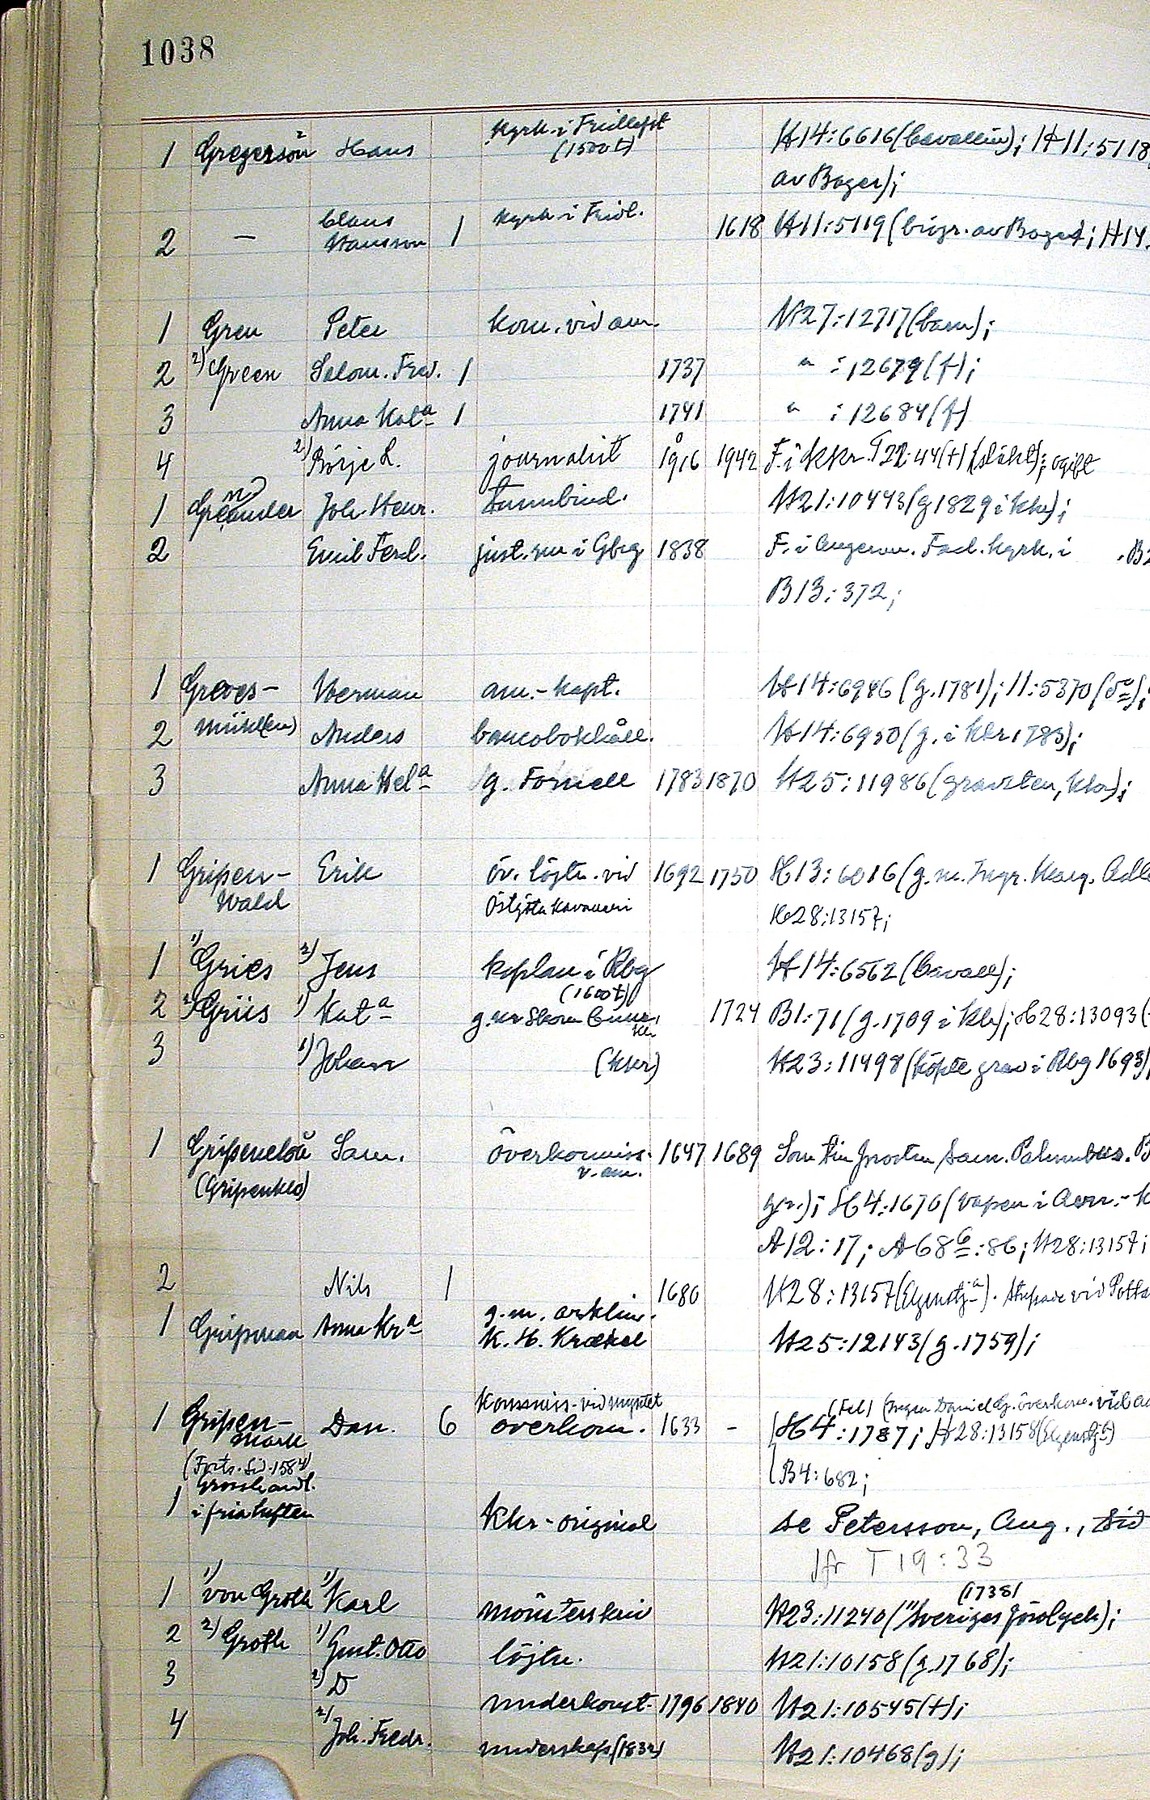 1038
kyrk. i Fridlefst
1 Gregerson Hans (1500 t) H14:6616 (Cavallin); H11:5118
av Bager);
2 — Claus Hansson 1 kyrk. i Fridl. 1618 H11:5119 (biogr. av Bager; H14.
1 Gren Peter kom. vid am. H27:12717 (barn);
2 2) Green Salom. Fred. 1 1737 " :12679 (f);
3 Anna Kata 1 1741 " :12684 (f)
4 2) Börje L. journalist 1916 1942 F. i kkr. T22:44 (+) (släkt); ogift
1 Greander Joh. Henr. H21:10443 (g. 1829 i kkr);
2 Emil Ferd. just. rm i Gbg 1838 F. i Fad. kyrk. i . B2
B13:372;
1 Greves- Herman am.-kapt. H14:6946 (g. 1781); 11:5370 (So);
2 mühl(en) Anders bancobokhåll. H14:6950 (g. i kkr 1783);
3 Anna Hela g. Fornell 1783 1870 H25:11986 (gravsten, kkr);
1 Gripen- Erik öv. löjtn. vid 1692 1750 H13:6016 (g. m. Ingr. Marg. Adl
wald Östgöta kavalleri H28:13157;
1 1) Gries 2) Jens kaplan i Rbg H14:6562 (Cavall);
(1600 t)
2 2) Griis 1) Kata g. m 1724 B1:71 (g. 1709 i kkr); H28:13093 (
kkr
3 1) Johan (kkr) H23:11498 (köpte grav i Rbg 1693)
1 Gripenclou Sam. överkommiss. 1647 1689 Son till prosten Sam. B
(Gripenklo) v. am. H4:1670 (vapen i
A12:17; A68:86; H28:13157;
2 Nils 1 1680 H28:13157 (Elgenstja).
g. m. arklim.
1 Gripman Anna Kra K. H. Krækel H25:12143 (g. 1759);
Kommiss. vid myntet (Fel) (ingen Daniel G. överkom. vid
1 Gripen- Dan. 6 överkom. 1633 – H4:1787; H28:13158 (Elgenstj)
mark
(Forts. sid. 1584) B4:682;
Grosshandl.
1 i fria luften kkr-original se Petersson, Aug., sid
Jfr T19:33
(1738)
1 1) von Groth 1) Karl mönsterskriv H23:11240 ("Sveriges
2 2) Groth 1) Gust. Otto löjtn. H21:10158 (g. 1768);
3 2) D underkonst. 1796 1840 H21:10545 (+);
4 2) Joh. Fredr. underskep (1832) H21:10468 (g);